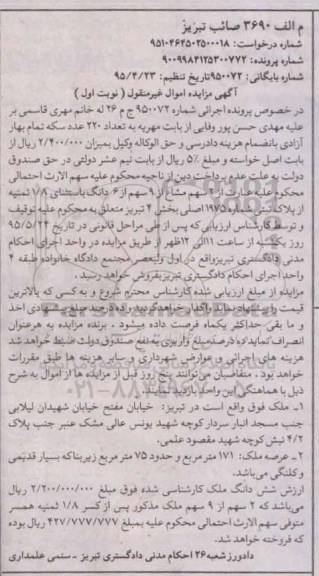 م الف ۳۶۹۰ صائب تبریز
شماره درخواست: ۹۵۱۰۴۶۲۵۰۲۵۰۰۰۱۸
شماره پرونده: ۹۰۰۹۹۸۴۱۲۵۳۰۰۷۷۲
شماره بایگانی: ۹۵۰۰۷۲ تاریخ تنظیم: ۹۵/۴/۲۳
آگهی مزایده اموال غیرمنقول ( نوبت اول )
در خصوص پرونده اجرائی شماره ۹۵۰۰۷۲ ج م ۲۶ له خانم مهری قاسمی بر
علیه مهدی حسن پور وفایی از بابت مهریه به تعداد ۲۲۰ عدد سکه تمام بهار
آزادی بانضمام هزینه دادرسی و حق الوکاله وکیل بمیزان ۲/۴۰۰/۰۰۰ ریال از
بابت اصل خواسته و مبلغ ۵٪ ریال از بابت نیم عشر دولتی در حق صندوق
دولت به علت عدم پرداخت دین از ناحیه محکوم علیه سهم الارث احتمالی
محکوم علیه عبارت از ۲ سهم مشاع از ۹ سهم از ۶ دانگ باستثنای ۱/۸ ثمنیه
از پلاک ثبتی شماره ۱۹۷۵ اصلی بخش ۴ تبریز متعلق به محکوم علیه توقیف
و توسط کارشناس ارزیابی که پس از طی مراحل قانونی در تاریخ ۹۵/۵/۲۴
روز یکشنبه از ساعت ۱۱ الی ۱۲ ظهر از طریق مزایده در واحد اجرای احکام
مدنی دادگستری تبریز واقع در اول ولیعصر مجتمع دادگاه خانواده طبقه ۴
واحد اجرای احکام دادگستری تبریز بفروش خواهد رسید .
مزایده از مبلغ ارزیابی شده کارشناس محترم شروع و به کسی که بالاترین
قیمت را پیشنهاد نماید واگذار خواهد گردید . ده درصد مبلغ پیشنهادی اخذ
و ما بقی حداکثر یکماه فرصت داده میشود . برنده مزایده به هر عنوان
انصراف نماید ده درصد مبلغ واریزی به نفع صندوق دولت ضبط خواهد شد
هزینه های اجرائی و عوارض شهرداری و سایر هزینه ها طبق مقررات
خواهد بود . متقاضیان می‌توانند پنج روز قبل از مزایده ها از اموال به شرح
ذیل با هماهنگی این واحد بازدید نمایند.
۱- ملک فوق واقع است در تبریز: خیابان مفتح خیابان شهیدان لیلابی
جنب مسجد انبار سردار کوچه شهید یونس عالی مشک عنبر جنب پلاک
۴/۲ نبش کوچه شهید مقصود علمی.
۲- عرصه ملک: ۱۷۱ متر مربع و حدود ۷۵ متر مربع زیربنا که بسیار قدیمی
و کلنگی می‌باشد.
ارزش شش دانگ ملک کارشناسی شده فوق مبلغ ۲/۲۰۰/۰۰۰/۰۰۰ ریال
می‌باشد که ۲ سهم از ۹ سهم ملک مذکور پس از کسر ۱/۸ ثمنیه همسر
متوفی سهم الارث احتمالی محکوم علیه بمبلغ ۴۲۷/۷۷۷/۷۷۷ ریال بوده
که فروخته خواهد شد.
دادورز شعبه ۲۶ احکام مدنی دادگستری تبریز - سنمی علمداری